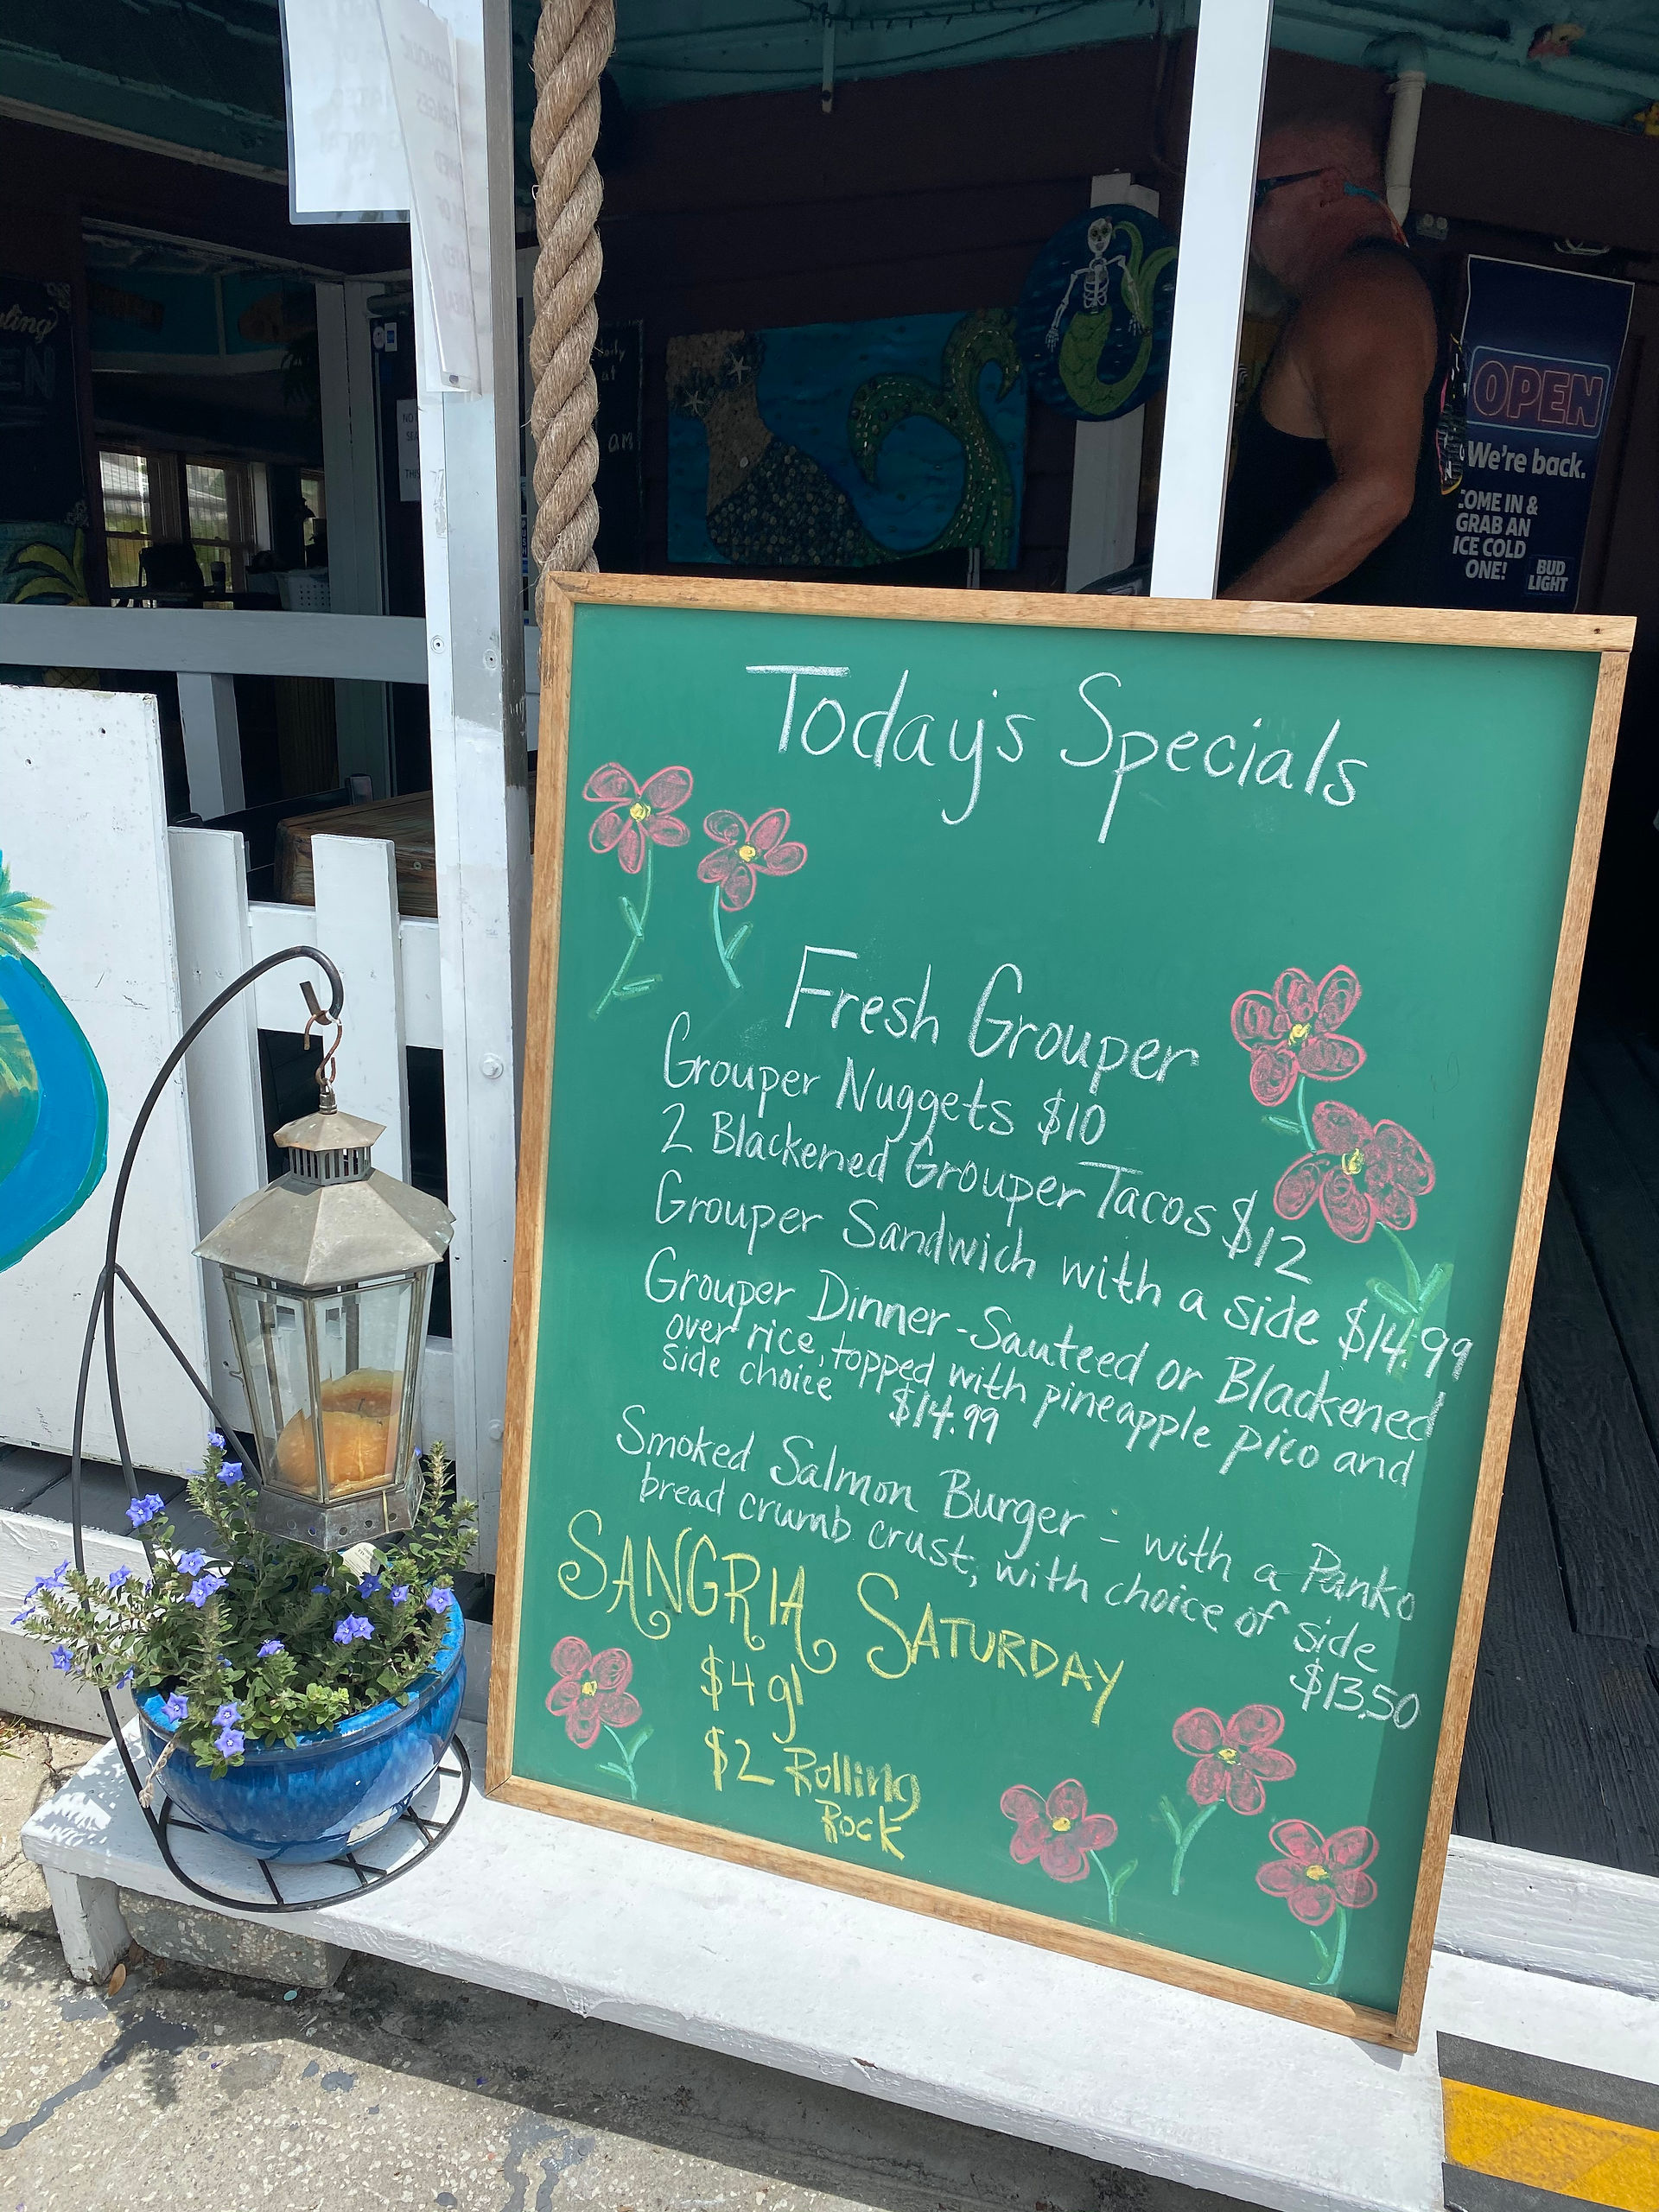 OPEN
We're back.
COME IN &
GRAB AN
ICE COLD
ONE!
BUD
LIGHT
am
NO
THIS
Today's Specials
Fresh Grouper
Grouper Nuggets $10
2 Blackened Grouper Tacos $12
Grouper Sandwich with a side $14.99
Grouper Dinner - Sauteed or Blackened
over rice, topped with pineapple pico and
side choice $14.99
Smoked Salmon Burger - with a Panko
bread crumb crust, with choice of side
$13.50
SANGRIA SATURDAY
$4 gl
$2 Rolling
Rock